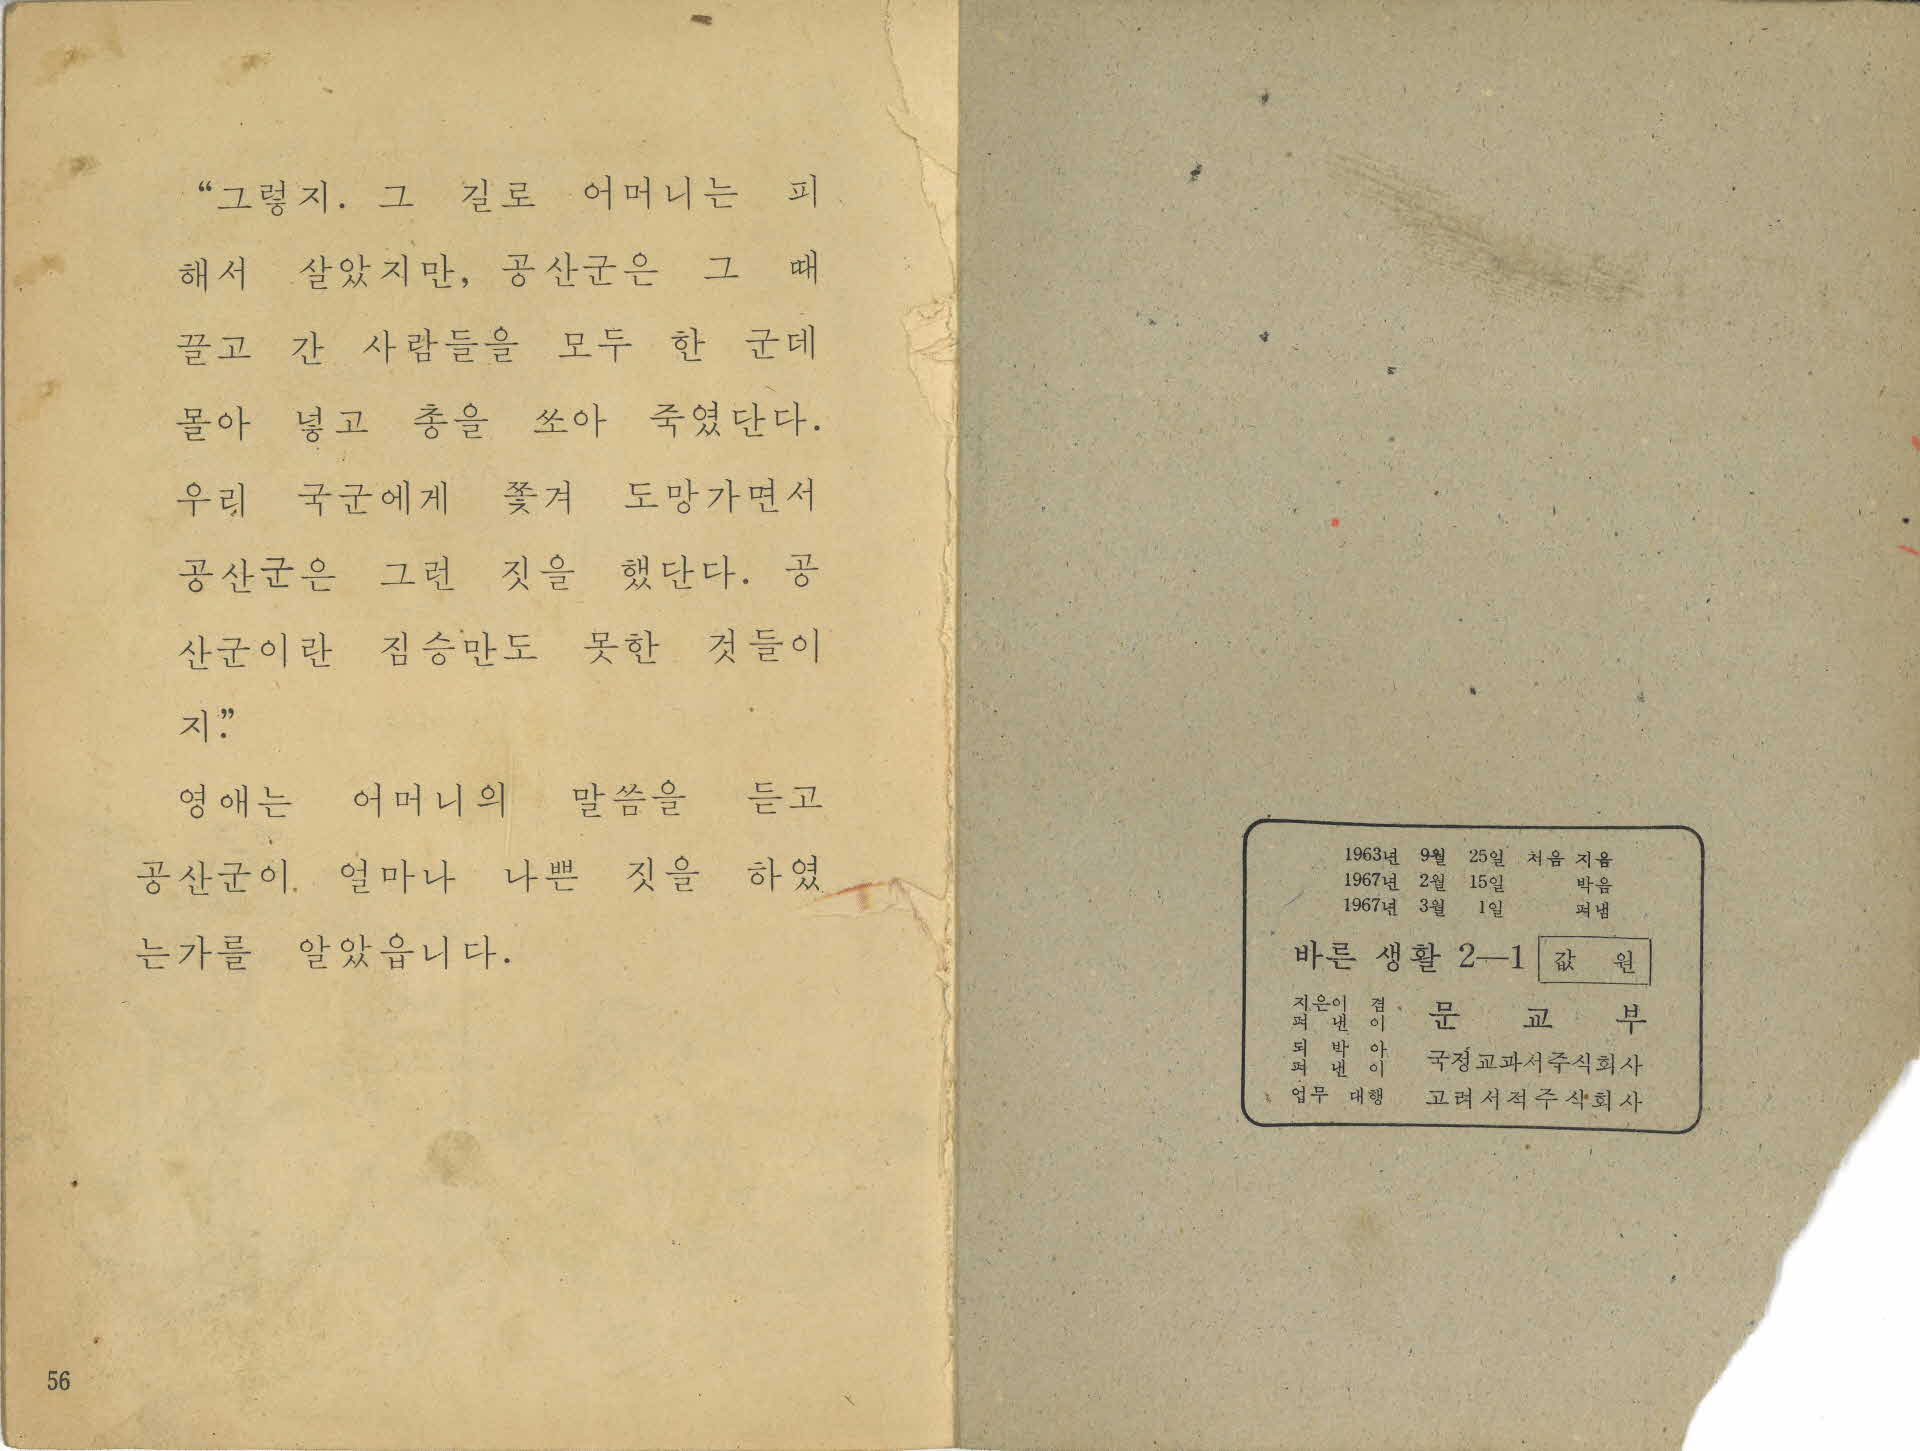 “그렇지. 그 길로 어머니는 피
해서 살았지만, 공산군은 그 때
끌고 간 사람들을 모두 한 군데
몰아 넣고 총을 쏘아 죽였단다.
우리 국군에게 쫓겨 도망가면서
공산군은 그런 짓을 했단다. 공
산군이란 짐승만도 못한 것들이
지.”
영애는 어머니의 말씀을 듣고
공산군이 얼마나 나쁜 짓을 하였
는가를 알았읍니다.
56
1963년 9월 25일 처음 지음
1967년 2월 15일 박음
1967년 3월 1일 펴냄
바른 생활 2—1 값 원
지은이 겸
펴 낸 이 문 교 부
되 박 아
펴 낸 이 국정교과서주식회사
업무 대행 고려서적주식회사